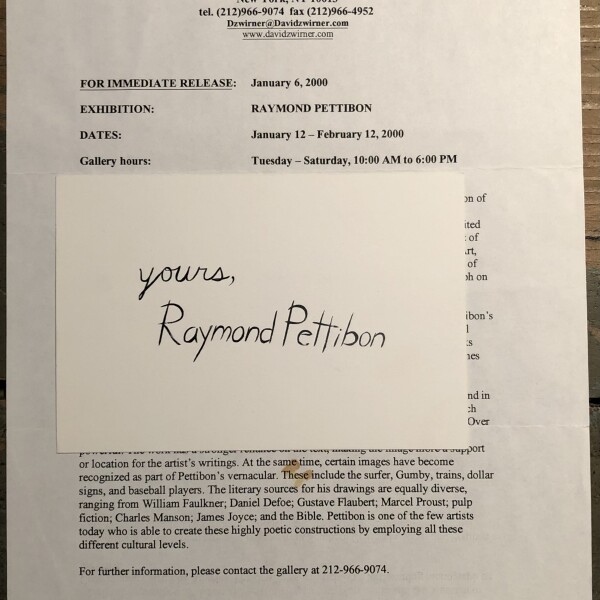 tel. (212)966-9074 fax (212)966-4952
Dzwirner@Davidzwirner.com
www.davidzwirner.com
FOR IMMEDIATE RELEASE: January 6, 2000
EXHIBITION: RAYMOND PETTIBON
DATES: January 12 – February 12, 2000
Gallery hours: Tuesday – Saturday, 10:00 AM to 6:00 PM
of
of
of
on
yours,
Raymond Pettibon
in
Over
support
or location for the artist's writings. At the same time, certain images have become
recognized as part of Pettibon's vernacular. These include the surfer, Gumby, trains, dollar
signs, and baseball players. The literary sources for his drawings are equally diverse,
ranging from William Faulkner; Daniel Defoe; Gustave Flaubert; Marcel Proust; pulp
fiction; Charles Manson; James Joyce; and the Bible. Pettibon is one of the few artists
today who is able to create these highly poetic constructions by employing all these
different cultural levels.
For further information, please contact the gallery at 212-966-9074.